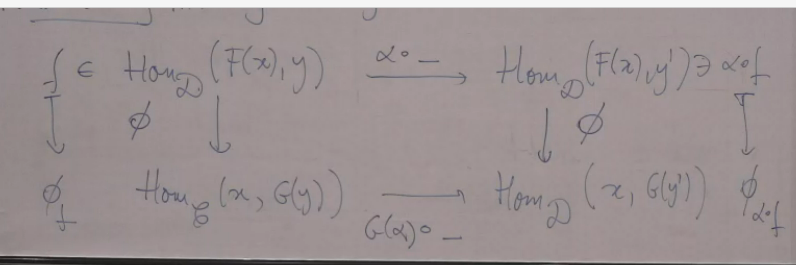 α∘ _
f ∈ Hom_D (F(x), y) ⟶ Hom_D (F(x), y') ∋ α∘f
↧ ϕ ↓ ↓ ϕ ↧
ϕ_f Hom_C (x, G(y)) ⟶ Hom_D (x, G(y')) ϕ_α∘f
G(α)∘ _